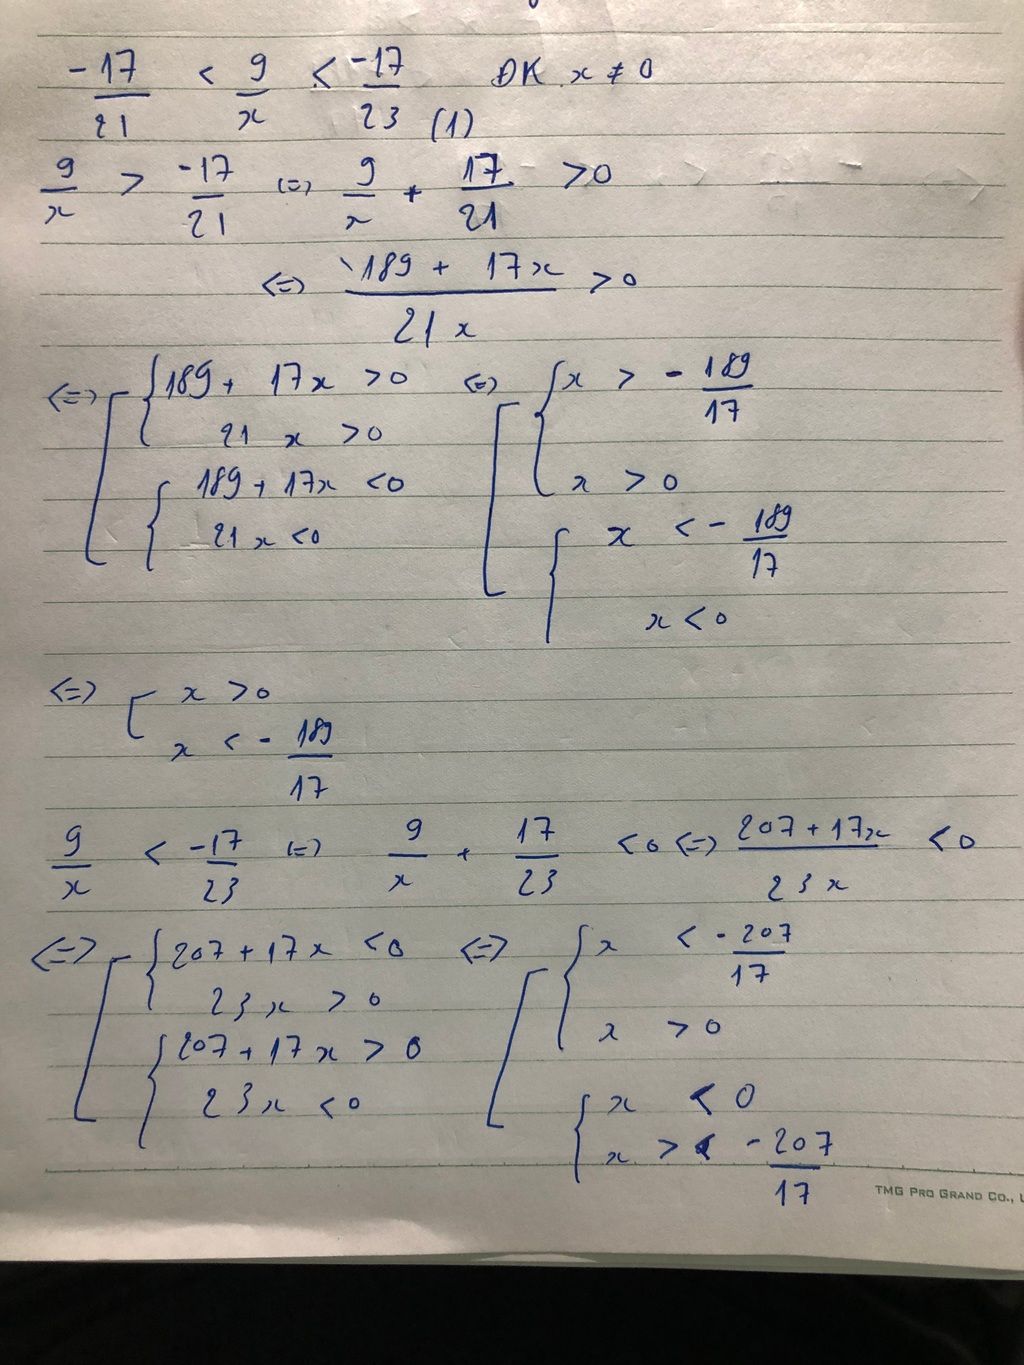 -17/21 < 9/x < -17/23 ĐK x ≠ 0
(1)
9/x > -17/21 (=) 9/x + 17/21 > 0
<=> 189 + 17x / 21x > 0
<=> [ { 189 + 17x > 0 <=> [ { x > - 189/17
21 x > 0
x > 0
{ 189 + 17x < 0
{ x < - 189/17
21x < 0
x < 0
<=> [ x > 0
x < - 189/17
9/x < -17/23 (=) 9/x + 17/23 < 0 <=> 207 + 17x / 23x < 0
<=> [ { 207 + 17x < 0 <=> [ { x < - 207/17
23x > 0
x > 0
{ 207 + 17x > 0
{ x < 0
23x < 0
x > - 207/17
TMG PRO GRAND CO.,